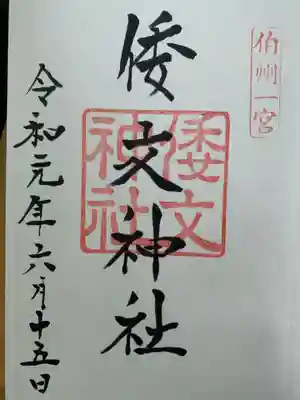 伯州一宮
倭文神社
倭文神社
令和元年六月十五日